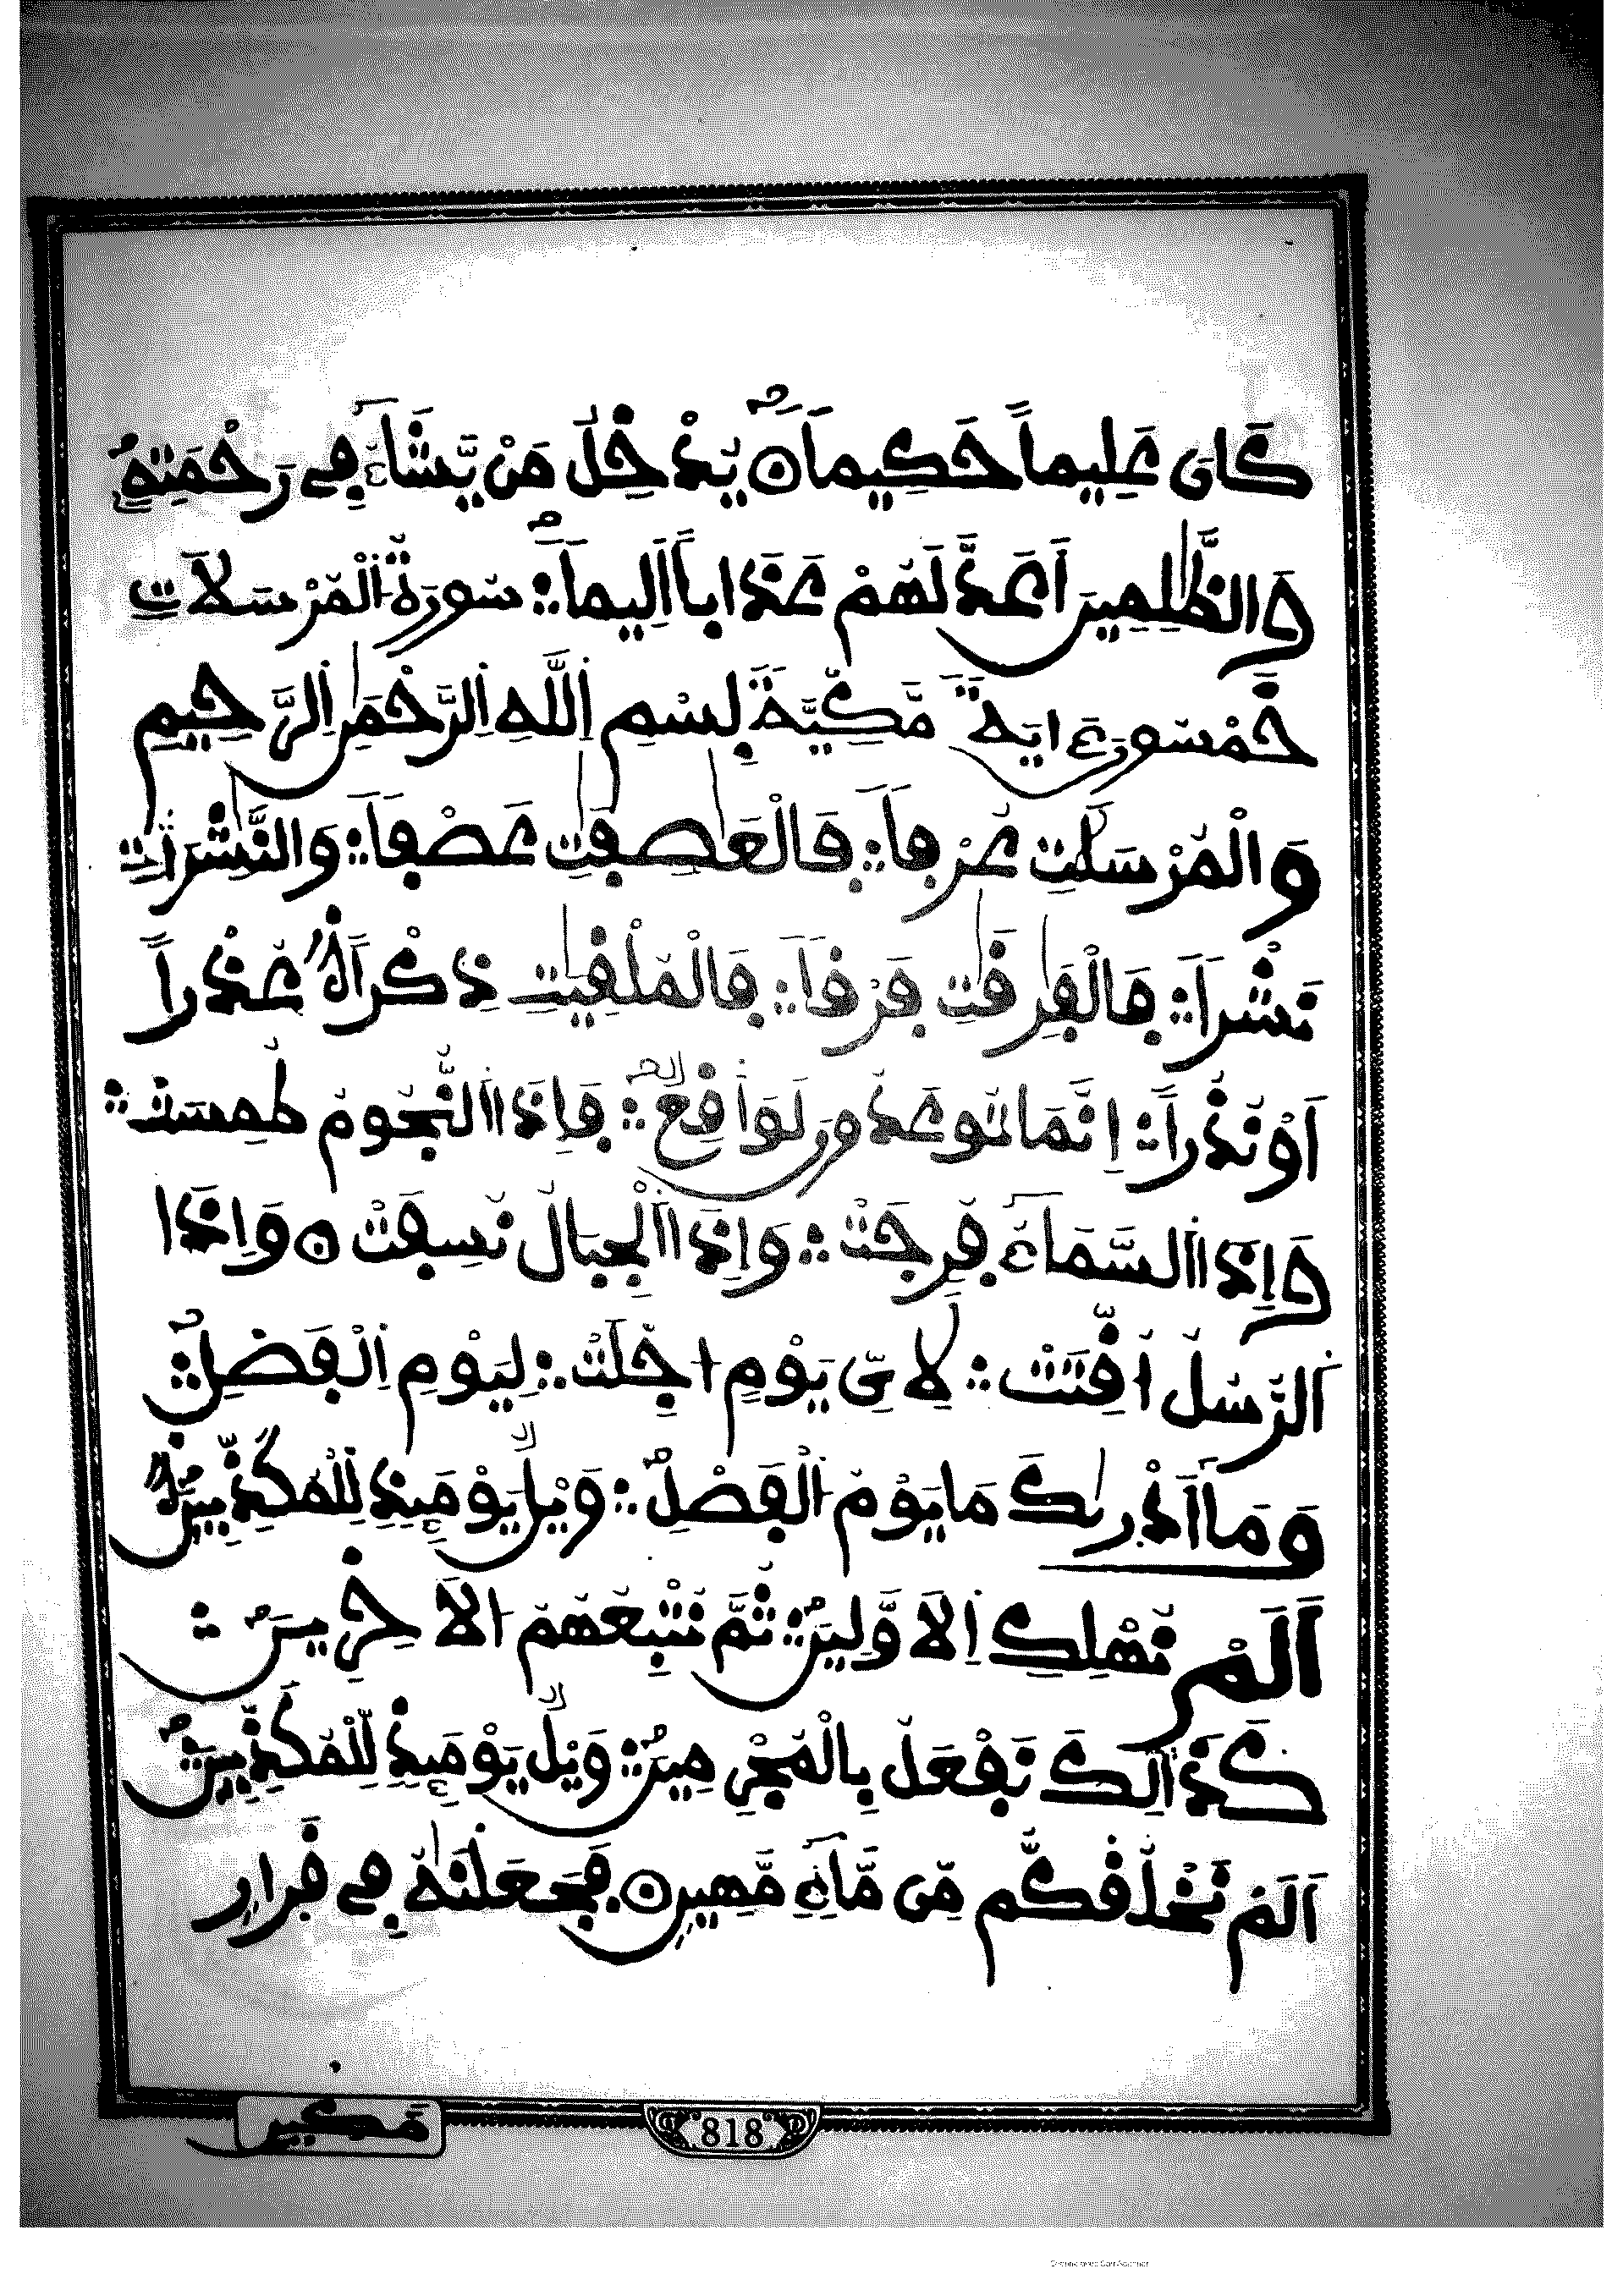 كَانَ عَلِيماً حَكِيماً ۝ يُدْخِلُ مَنْ يَّشَآءُ فِي رَحْمَتِهِۦ
وَالظَّٰلِمِينَ أَعَدَّ لَهُمْ عَذَاباً أَلِيماً ∴ سُورَةُ الْمُرْسَلَاتِ
خَمْسُونَ ءَايَةً مَّكِّيَّةٌ بِسْمِ اللَّهِ الرَّحْمَٰنِ الرَّحِيمِ
وَالْمُرْسَلَٰتِ عُرْفاً ∴ فَالْعَٰصِفَٰتِ عَصْفاً ∴ وَالنَّٰشِرَٰتِ
نَشْراً ∴ فَالْفَٰرِقَٰتِ فَرْقاً ∴ فَالْمُلْقِيَٰتِ ذِكْراً عُذْراً
أَوْ نُذُراً ∴ إِنَّمَا تُوعَدُونَ لَوَٰقِعٌ ∴ فَإِذَا النُّجُومُ طُمِسَتْ ∴
وَإِذَا السَّمَآءُ فُرِجَتْ ∴ وَإِذَا الْجِبَالُ نُسِفَتْ ۝ وَإِذَا
الرُّسُلُ أُقِّتَتْ ∴ لِأَيِّ يَوْمٍ أُجِّلَتْ ∴ لِيَوْمِ الْفَصْلِ ∴
وَمَآ أَدْرَىٰكَ مَا يَوْمُ الْفَصْلِ ∴ وَيْلٌ يَوْمَئِذٍ لِّلْمُكَذِّبِينَ
أَلَمْ نُهْلِكِ الْأَوَّلِينَ ∴ ثُمَّ نُتْبِعُهُمُ الْأَخِرِينَ ∴
كَذَٰلِكَ نَفْعَلُ بِالْمُجْرِمِينَ ∴ وَيْلٌ يَوْمَئِذٍ لِّلْمُكَذِّبِينَ
أَلَمْ نَخْلُقكُّم مِّن مَّآءٍ مَّهِينٍ ۝ فَجَعَلْنَٰهُ فِي قَرَارٍ
مَّكِينٍ
818